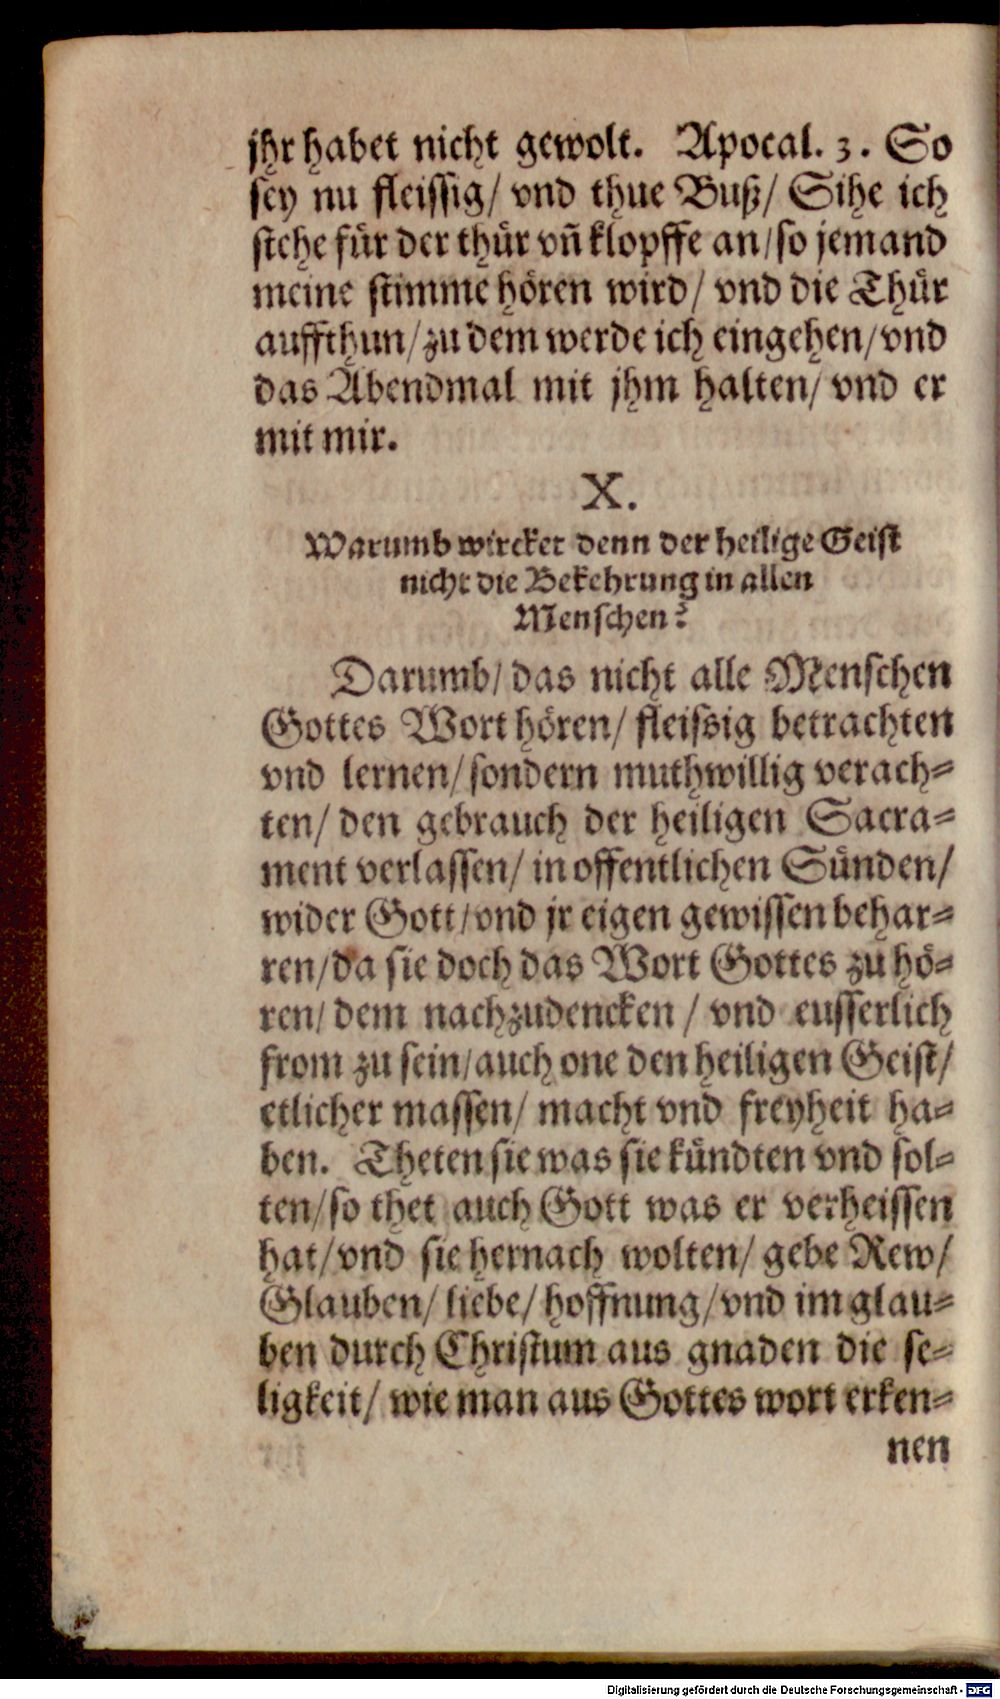 jhr habet nicht gewolt. Apocal. 3. So
sey nu fleissig/ vnd thue Buß/ Sihe ich
stehe für der thür vñ klopffe an/so jemand
meine stimme hören wird/ vnd die Thür
auffthun/zu dem werde ich eingehen/vnd
das Abendmal mit jhm halten/ vnd er
mit mir.
X.
Warumb wircket denn der heilige Geist
nicht die Bekehrung in allen
Menschen?
Darumb/das nicht alle Menschen
Gottes Wort hören/ fleissig betrachten
vnd lernen/sondern muthwillig verach-
ten/ den gebrauch der heiligen Sacra-
ment verlassen/ in offentlichen Sünden/
wider Gott/vnd jr eigen gewissen behar-
ren/da sie doch das Wort Gottes zu hö-
ren/ dem nachzudencken/ vnd eusserlich
from zu sein/auch one den heiligen Geist/
etlicher massen/ macht vnd freyheit ha-
ben. Theten sie was sie kündten vnd sol-
ten/so thet auch Gott was er verheissen
hat/vnd sie hernach wolten/ gebe Rew/
Glauben/ liebe/ hoffnung/vnd im glau-
ben durch Christum aus gnaden die se-
ligkeit/ wie man aus Gottes wort erken-
nen
Digitalisierung gefördert durch die Deutsche Forschungsgemeinschaft - DFG